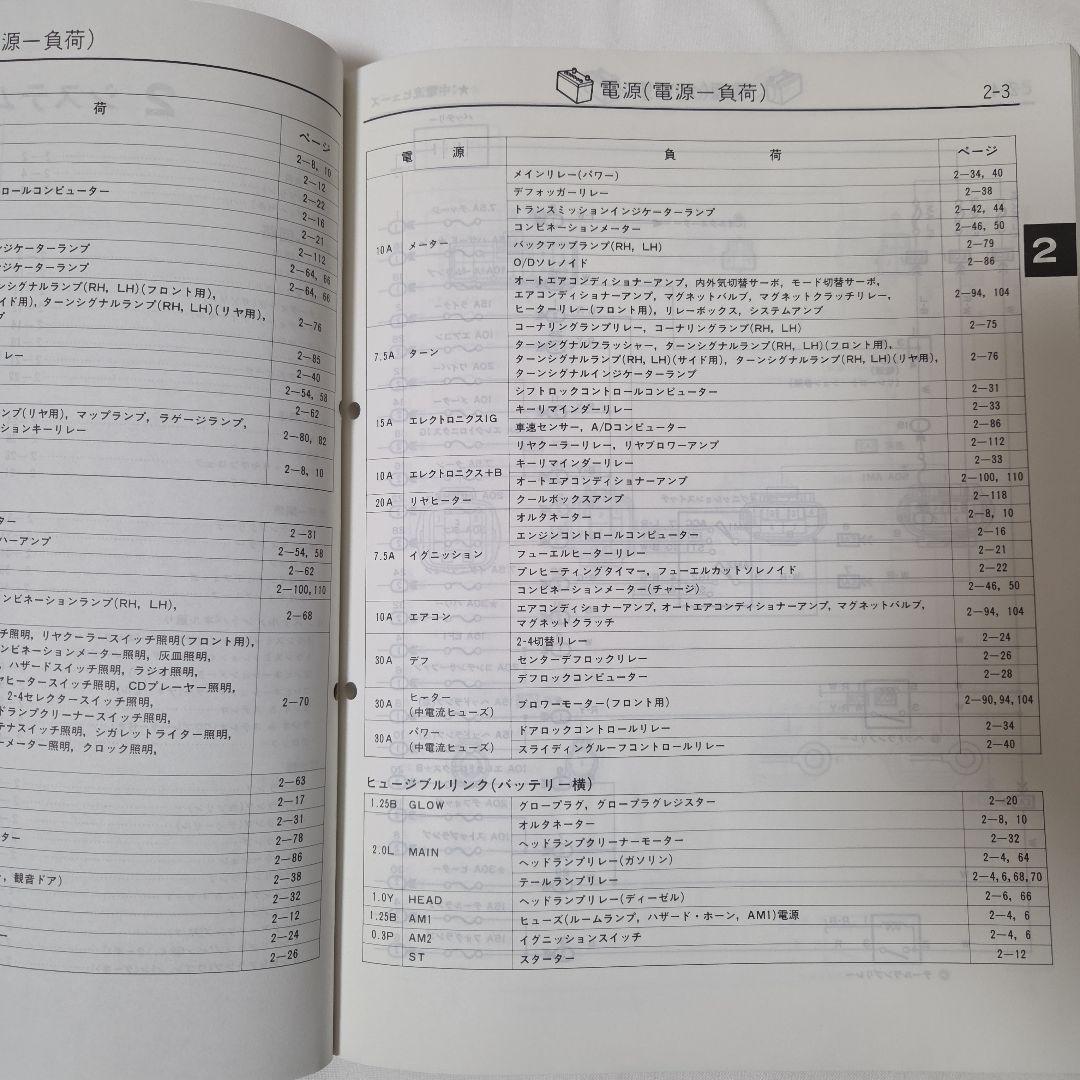 源ー負荷)
荷
ページ
2-8, 10
2-12
ロールコンピューター
2-22
2-16
2-21
ジケーターランプ
2-112
ジケーターランプ
2-64, 66
ンシグナルランプ(RH, LH)(フロント用),
2-64, 66
イド用), ターンシグナルランプ(RH, LH)(リヤ用),
2-76
レー
2-85
2-40
2-54, 58
2-62
ンプ(リヤ用), マップランプ, ラゲージランプ,
ションキーリレー
2-80, 82
2-8, 10
ター
2-31
ハーアンプ
2-54, 58
2-62
2-100,110
ンビネーションランプ(RH, LH),
2-68
チ照明, リヤクーラースイッチ照明(フロント用),
ンビネーションメーター照明, 灰皿照明,
, ハザードスイッチ照明, ラジオ照明,
ヤヒータースイッチ照明, CDプレーヤー照明,
2-4セレクタースイッチ照明,
2-70
ドランプクリーナースイッチ照明,
テナスイッチ照明, シガレットライター照明,
ーメーター照明, クロック照明,
2-63
2-17
2-31
ター
2-78
2-86
, 観音ドア)
2-38
2-32
2-12
ー
2-24
2-26
電源(電源ー負荷)
2-3
2
電 源 負 荷 ページ
10A メーター メインリレー(パワー) 2-34, 40
デフォッガーリレー 2-38
トランスミッションインジケーターランプ 2-42, 44
コンビネーションメーター 2-46, 50
バックアップランプ(RH, LH) 2-79
O/Dソレノイド 2-86
オートエアコンディショナーアンプ, 内外気切替サーボ, モード切替サーボ,
エアコンディショナーアンプ, マグネットバルブ, マグネットクラッチリレー, 2-94, 104
ヒーターリレー(フロント用), リレーボックス, システムアンプ
7.5A ターン コーナリングランプリレー, コーナリングランプ(RH, LH) 2-75
ターンシグナルフラッシャー, ターンシグナルランプ(RH, LH)(フロント用),
ターンシグナルランプ(RH, LH)(サイド用), ターンシグナルランプ(RH, LH)(リヤ用), 2-76
ターンシグナルインジケーターランプ
15A エレクトロニクスIG シフトロックコントロールコンピューター 2-31
キーリマインダーリレー 2-33
車速センサー, A/Dコンピューター 2-86
リヤクーラーリレー, リヤブロワーアンプ 2-112
10A エレクトロニクス+B キーリマインダーリレー 2-33
オートエアコンディショナーアンプ 2-100, 110
20A リヤヒーター クールボックスアンプ 2-118
7.5A イグニッション オルタネーター 2-8, 10
エンジンコントロールコンピューター 2-16
フューエルヒーターリレー 2-21
プレヒーティングタイマー, フューエルカットソレノイド 2-22
コンビネーションメーター(チャージ) 2-46, 50
10A エアコン エアコンディショナーアンプ, オートエアコンディショナーアンプ, マグネットバルブ,
マグネットクラッチ 2-94, 104
30A デフ 2-4切替リレー 2-24
センターデフロックリレー 2-26
デフロックコンピューター 2-28
30A ヒーター
(中電流ヒューズ) ブロワーモーター(フロント用) 2-90,94,104
30A パワー
(中電流ヒューズ) ドアロックコントロールリレー 2-34
スライディングルーフコントロールリレー 2-40
ヒュージブルリンク(バッテリー横)
1.25B GLOW グロープラグ, グロープラグレジスター 2-20
2.0L MAIN オルタネーター 2-8, 10
ヘッドランプクリーナーモーター 2-32
ヘッドランプリレー(ガソリン) 2-4, 64
テールランプリレー 2-4,6,68,70
1.0Y HEAD ヘッドランプリレー(ディーゼル) 2-6, 66
1.25B AM1 ヒューズ(ルームランプ, ハザード・ホーン, AM1)電源 2-4, 6
0.3P AM2 イグニッションスイッチ 2-4, 6
ST スターター 2-12